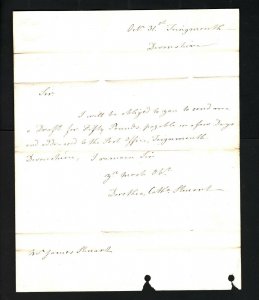 Octr 31st Teignmouth
Devonshire
Sir
I will be obliged to you to send me
a Draft for Fifty Pounds payable in a few Days
and addressed to the Post Office, Teignmouth
Devonshire, I remain Sir
Yr Most Obt
Dorothea Cathe Stuart
James Stuart